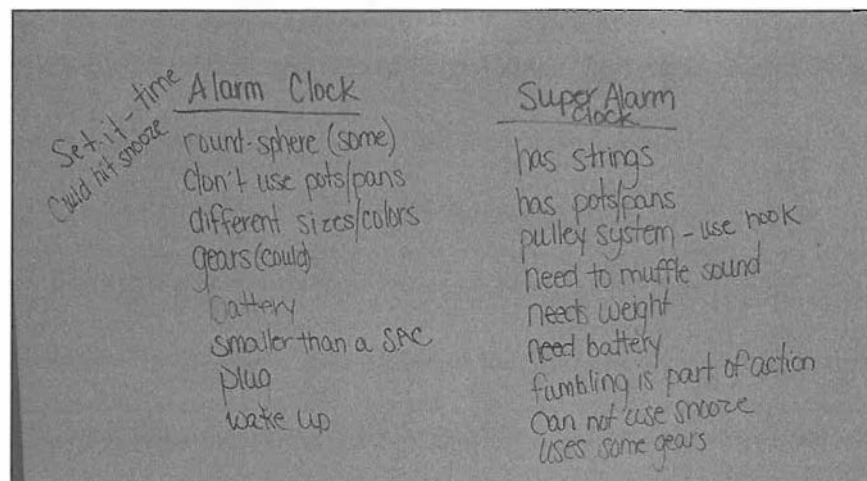 Set it - time
Could hit snooze
Alarm Clock
round-sphere (some)
don't use pots/pans
different sizes/colors
gears (could)
battery
smaller than a SAC
plug
wake up
Super Alarm
Clock
has strings
has pots/pans
pulley system - use hook
need to muffle sound
needs weight
need battery
fumbling is part of action
can not use snooze
uses some gears